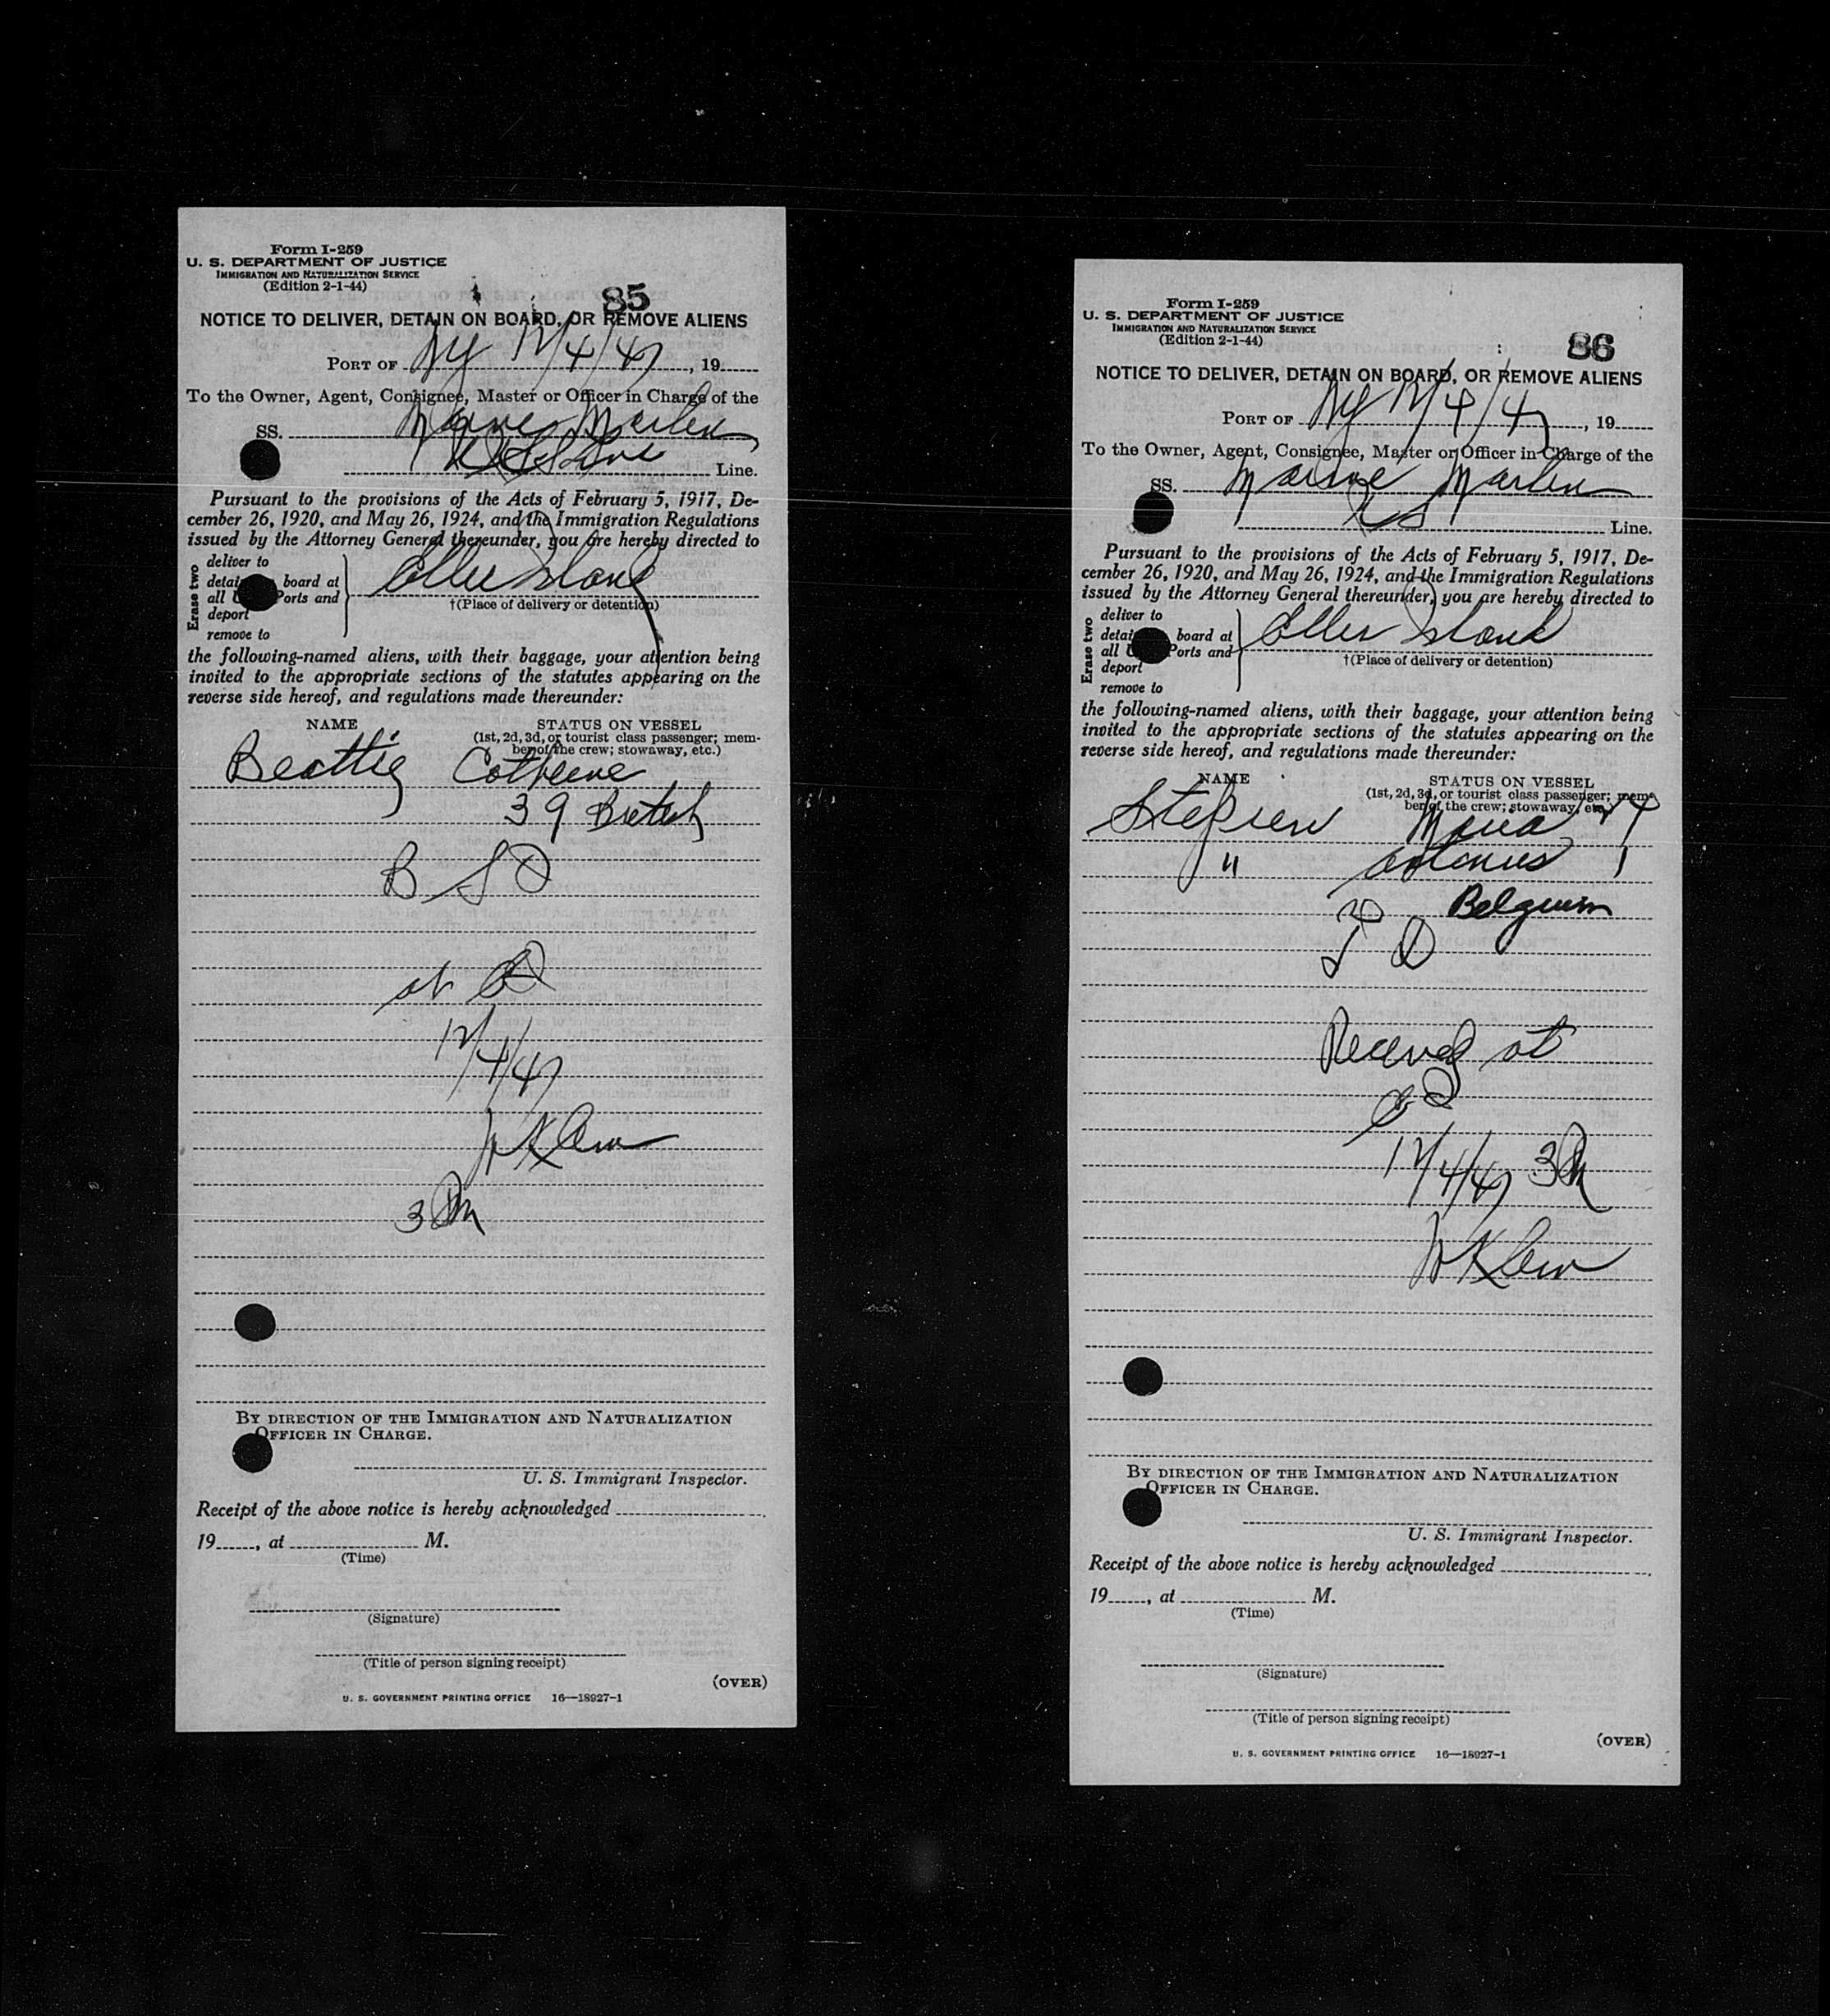 Form I-259
U. S. DEPARTMENT OF JUSTICE
IMMIGRATION AND NATURALIZATION SERVICE
(Edition 2-1-44)
85
NOTICE TO DELIVER, DETAIN ON BOARD, OR REMOVE ALIENS
PORT OF NY 12/4/47, 19
To the Owner, Agent, Consignee, Master or Officer in Charge of the
SS. Marine Marlin
Line.
Pursuant to the provisions of the Acts of February 5, 1917, De-
cember 26, 1920, and May 26, 1924, and the Immigration Regulations
issued by the Attorney General thereunder, you are hereby directed to
Erase two
deliver to
detain board at
all Ports and
deport
remove to
Ellis Island
†(Place of delivery or detention)
the following-named aliens, with their baggage, your attention being
invited to the appropriate sections of the statutes appearing on the
reverse side hereof, and regulations made thereunder:
NAME STATUS ON VESSEL
(1st, 2d, 3d, or tourist class passenger; mem-
ber of the crew; stowaway, etc.)
Beattie Catherine
39 British
B S
at
12/4/47
W Klein
3 PM
BY DIRECTION OF THE IMMIGRATION AND NATURALIZATION
OFFICER IN CHARGE.
U. S. Immigrant Inspector.
Receipt of the above notice is hereby acknowledged
19, at M.
(Time)
(Signature)
(Title of person signing receipt)
(OVER)
U. S. GOVERNMENT PRINTING OFFICE 16—18927-1
Form I-259
U. S. DEPARTMENT OF JUSTICE
IMMIGRATION AND NATURALIZATION SERVICE
(Edition 2-1-44)
86
NOTICE TO DELIVER, DETAIN ON BOARD, OR REMOVE ALIENS
PORT OF NY 12/4/47, 19
To the Owner, Agent, Consignee, Master or Officer in Charge of the
SS. Marine Marlin
US Line.
Pursuant to the provisions of the Acts of February 5, 1917, De-
cember 26, 1920, and May 26, 1924, and the Immigration Regulations
issued by the Attorney General thereunder, you are hereby directed to
Erase two
deliver to
detain board at
all Ports and
deport
remove to
Ellis Island
†(Place of delivery or detention)
the following-named aliens, with their baggage, your attention being
invited to the appropriate sections of the statutes appearing on the
reverse side hereof, and regulations made thereunder:
NAME STATUS ON VESSEL
(1st, 2d, 3d, or tourist class passenger; mem-
ber of the crew; stowaway, etc.)
Stepien Maria 24
" 1
Belguim
Received at
12/4/47 3 PM
W Klein
BY DIRECTION OF THE IMMIGRATION AND NATURALIZATION
OFFICER IN CHARGE.
U. S. Immigrant Inspector.
Receipt of the above notice is hereby acknowledged
19, at M.
(Time)
(Signature)
(Title of person signing receipt)
(OVER)
U. S. GOVERNMENT PRINTING OFFICE 16—18927-1